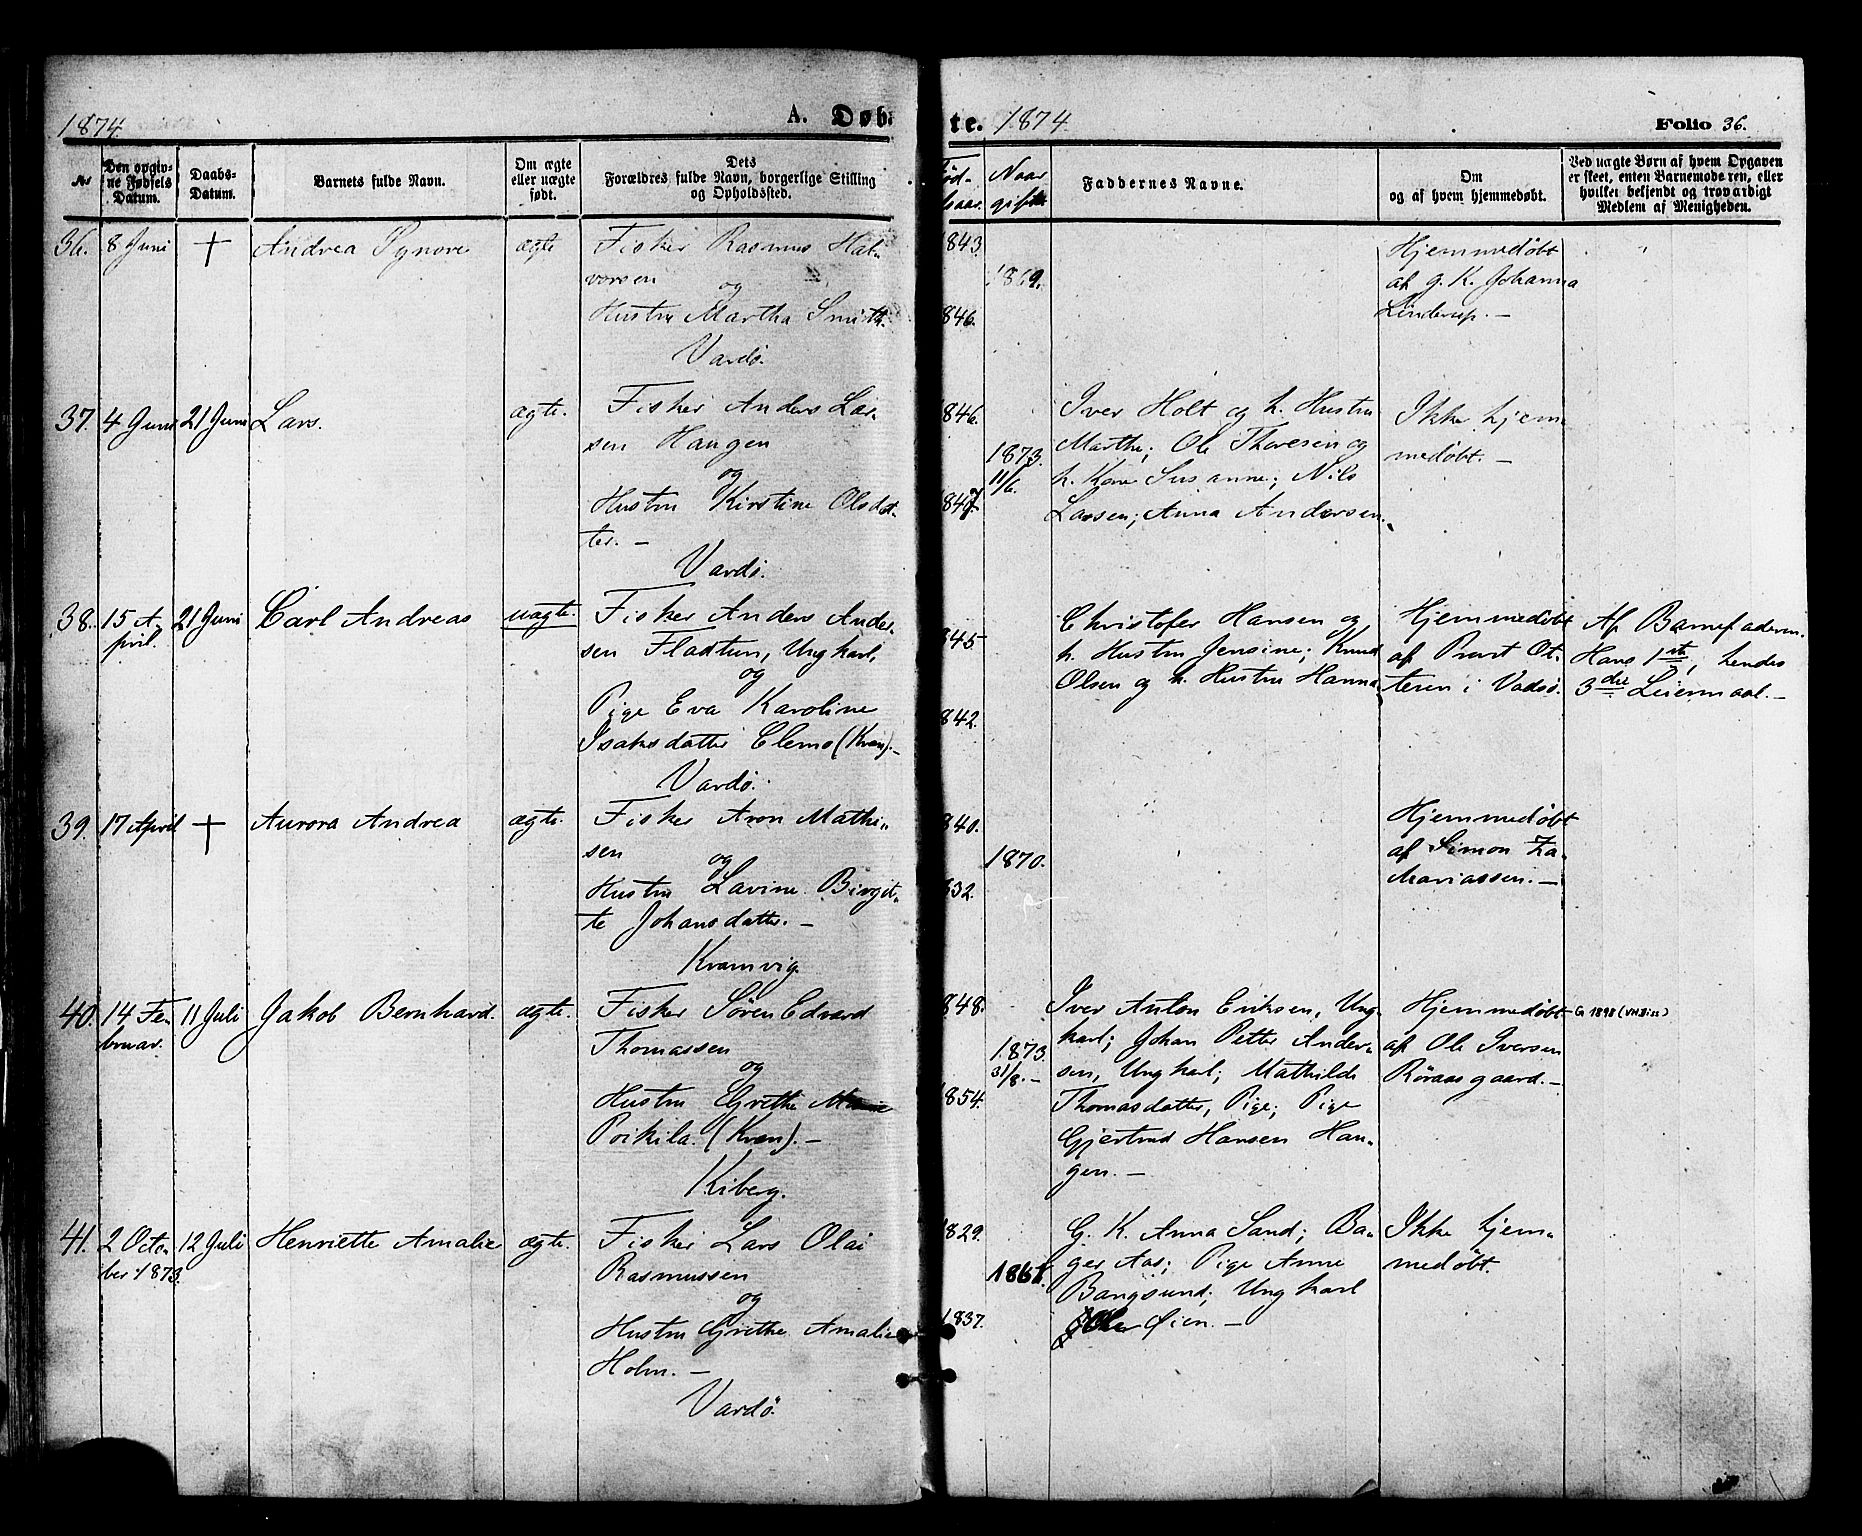 1874.
A. Døb-
te. 1874
Folio 36.
No
Den opgiv-
ne Fødsels
Datum.
Daabs-
Datum.
Barnets fulde Navn.
Om ægte
eller uægte
født.
Dets
Forældres fulde Navn, borgerlige Stilling
og Opholdssted.
Naar
gifte
Faddernes Navne.
Om
og af hvem hjemmedøbt.
Ved uægte Børn af hvem Opgaven
er skeet, enten Barnemoderen, eller
hvilket bekjendt og troværdigt
Medlem af Menigheden.
36. 8 Juni + Andrea ægte Fisker Rasmus Hal-
vorsen
og
Hustru Martha Smith.
Vardö.
1843.
1869.
1846.
Hjemmedøbt
af g. K. Johanna
Linderup. —
37. 4 Juni 21 Juni Lars. ægte. Fisker Anders Lar-
sen Haugen
og
Hustru Kirstine Olsdat-
ter. —
Vardö.
1846.
1873.
11/6.
1847.
Iver Holt og h. Hustru
Marthe; Ole Thoresen og
h. Kone Susanne; Nils
Larsen; Anna Andersen.
Ikke hjem-
medøbt. —
38. 15 A-
pril. 21 Juni Carl Andreas uægte. Fisker Anders Ander-
sen Fladtun, Ungkarl,
og
Pige Eva Karoline
Isaksdatter Clemo (Kvæn). —
Vardö.
845
842.
Christofer Hansen og
h. Hustru Jensine; Knud
Olsen og h. Hustru Hanna.
Hjemmedøbt
af Provst Ot-
teren i Vadsö.
Af Barnefaderen.
Hans 1ste, hendes
3die Leiermaal. —
39. 17 April + Aurora Andrea ægte. Fisker Aron Mathi-
sen
og
Hustru Lavine Birgit-
te Johansdatter. —
Kramvig.
840.
1870.
832.
Hjemmedøbt
af Simon Za-
kariassen. —
40. 14 Fe-
bruar. 11 Juli Jakob Bernhard. ægte. Fisker Sören Edvard
Thomassen
og
Hustru Grethe
Poikila. (Kvæn). —
Kiberg.
848.
1873
31/8. —
1854.
Iver Anton Eriksen, Ung-
karl; Johan Petter Ander-
sen, Ungkarl; Mathilde
Thomasdatter, Pige; Pige
Gjertrud Hansen Hau-
gen. —
Hjemmedøbt
af Ole Iversen
Röraasgaard. —
41. 2 Octo-
ber 1873. 12 Juli Henriette Amalie ægte. Fisker Lars Olai
Rasmussen
og
Hustru Grethe Amalie
Holm. —
Vardö.
1829.
1861.
1837.
G. K. Anna Sand; Ba-
ger Aas; Pige Anne
Bangsund; Ungkarl
Ole Öien. —
Ikke hjem-
medøbt.